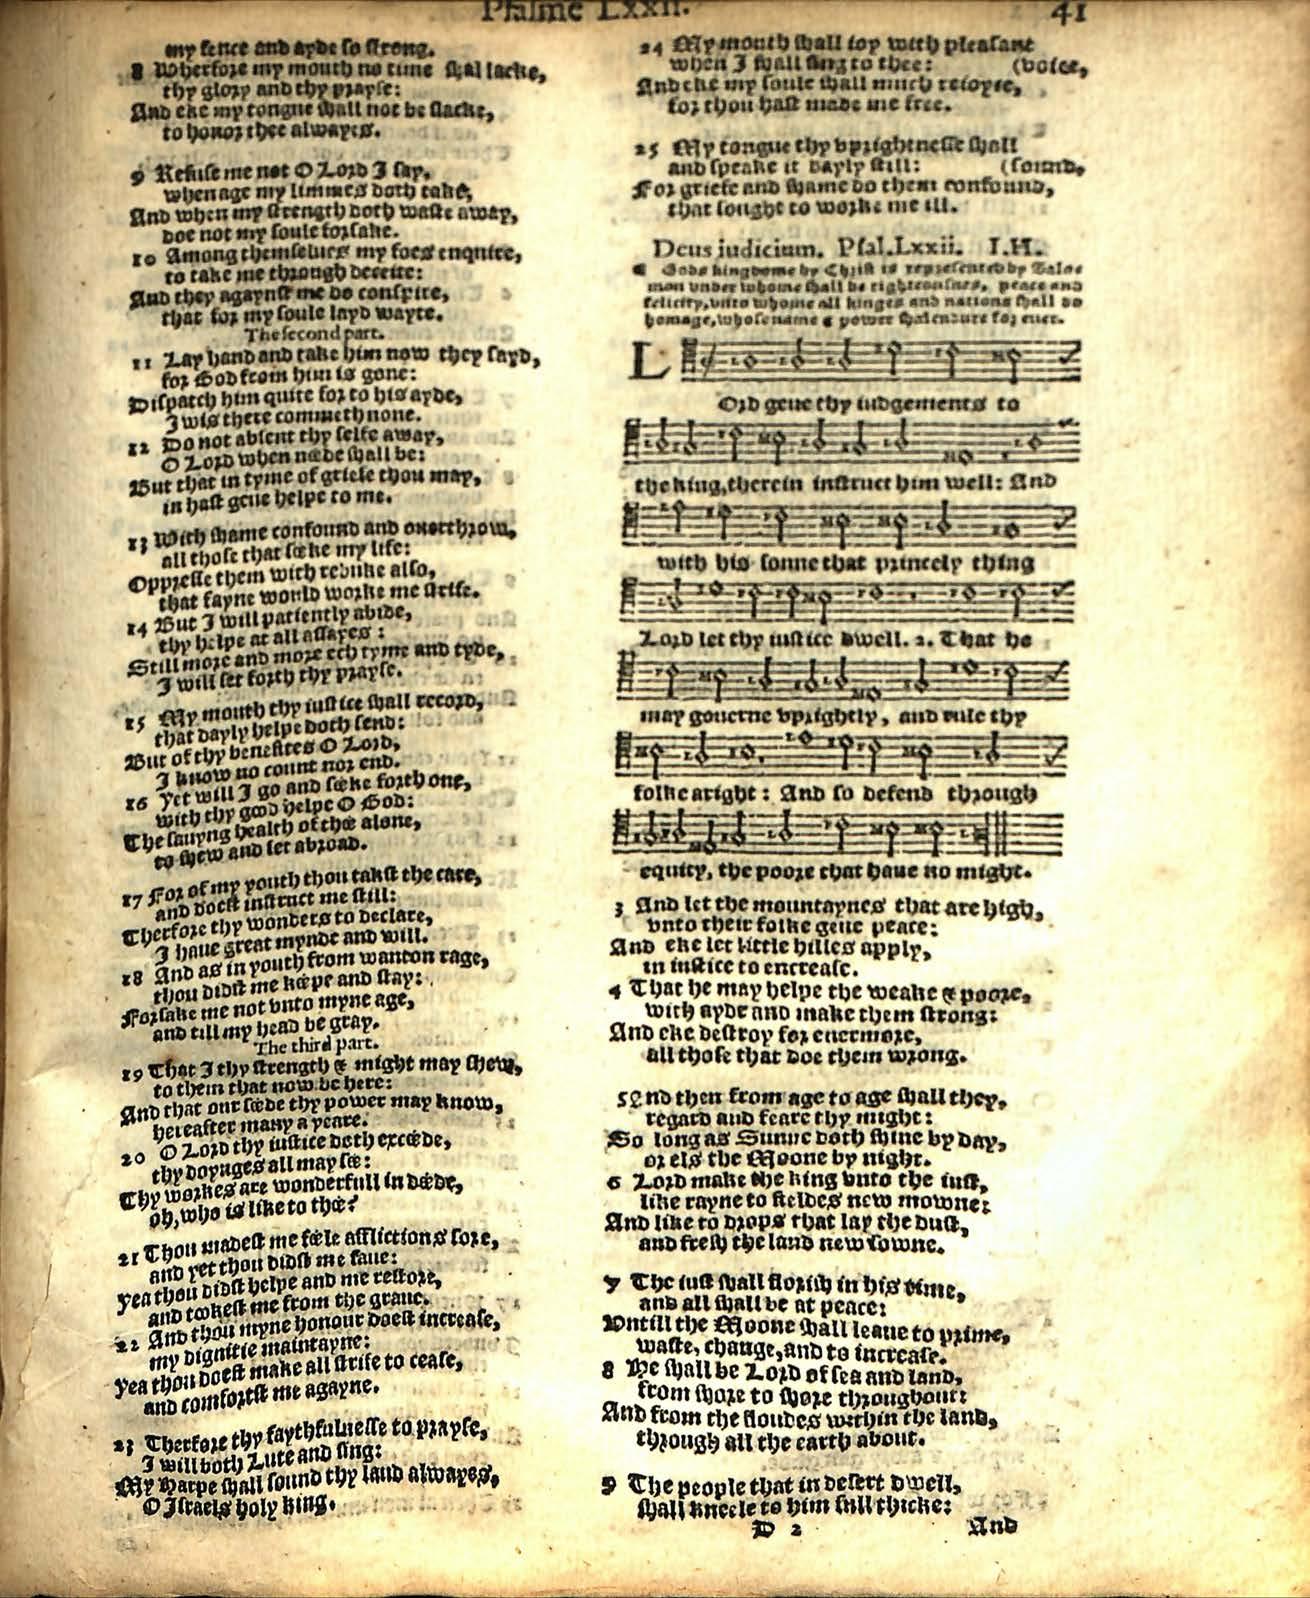 Psalme Lxxii. 41
my fence and ayde so strong.
8 Wherfore my mouth no time shal lacke,
thy glory and thy prayse:
And eke my tongue shall not be slacke,
to honor thee alwayes.
9 Refuse me not O Lord I say,
when age my limmes doth take,
And when my strength doth waste away,
doe not my soule forsake.
10 Among themselues my foes enquire,
to take me through deceite:
And they agaynst me do conspire,
that for my soule layd wayte.
The second part.
11 Lay hand and take him now they sayd,
for God from him is gone:
Dispatch him quite for to his ayde,
I wis there commeth none.
12 Do not absent thy selfe away,
O Lord when neede shall be:
But that in tyme of griefe thou may,
in hast geue helpe to me.
13 With shame confound and ouerthrow,
all those that seeke my life:
Oppresse them with rebuke also,
that fayne would worke me strife.
14 But I will patiently abide,
thy helpe at all assayes:
Still more and more ech tyme and tyde,
I will set forth thy prayse.
15 My mouth thy iustice shall record,
that dayly helpe doth send:
But of thy benefites O Lord,
I know no count nor end.
16 Yet will I go and seeke forth one,
with thy good helpe O God:
The sauyng health of thee alone,
to shew and set abroad.
17 For of my youth thou takst the care,
and doest instruct me still:
Therfore thy wonders to declare,
I haue great mynde and will.
18 And as in youth from wanton rage,
thou didst me keepe and stay:
Forsake me not vnto myne age,
and till my head be gray.
The third part.
19 That I thy strength & might may shew,
to them that now be here:
And that our seede thy power may know,
hereafter many a yeare.
20 O Lord thy iustice doth exceede,
thy doynges all may see:
Thy workes are wonderfull in deede,
oh, who is like to thee?
21 Thou madest me feele afflictions sore,
and yet thou didst me saue:
Yea thou didst helpe and me restore,
and tookest me from the graue.
22 And thou myne honour doest increase,
my dignitie maintayne:
Yea thou doest make all strife to cease,
and comfortst me agayne.
23 Therfore thy faythfulnesse to prayse,
I will both Lute and sing:
My Harpe shall sound thy laud alwayes,
O Israels holy king.
24 My mouth shall ioy with pleasant
when I shall sing to thee: (voice,
And eke my soule shall much reioyce,
for thou hast made me free.
25 My tongue thy vprightnesse shall
and speake it dayly still: (sound,
For griefe and shame do them confound,
that sought to worke me ill.
Deus judicium. Psal.Lxxii. I.H.
Gods kingdome by Christ is represented by Salo-
mon vnder whome shall be righteousnes, peace and
felicity, vnto whome all kinges and nations shall do
homage, whose name & power shal endure for euer.
L
Ord geue thy iudgements to
the king, therein instruct him well: And
with his sonne that princely thing
Lord let thy iustice dwell. 2. That he
may gouerne vprightly, and rule thy
folke aright: And so defend through
equity, the poore that haue no might.
3 And let the mountaynes that are high,
vnto their folke geue peace:
And eke let little hilles apply,
in iustice to encrease.
4 That he may helpe the weake & poore,
with ayde and make them strong:
And eke destroy for euermore,
all those that doe them wrong.
5 And then from age to age shall they,
regard and feare thy might:
So long as Sunne doth shine by day,
or els the Moone by night.
6 Lord make the king vnto the iust,
like rayne to fieldes new mowne:
And like to drops that lay the dust,
and fresh the land new sowne.
7 The iust shall florish in his time,
and all shall be at peace:
Vntill the Moone shall leaue to prime,
waste, change, and to increase.
8 He shall be Lord of sea and land,
from shore to shore throughout:
And from the floudes within the land,
through all the earth about.
9 The people that in desert dwell,
shall kneele to him full thicke:
D 2 And